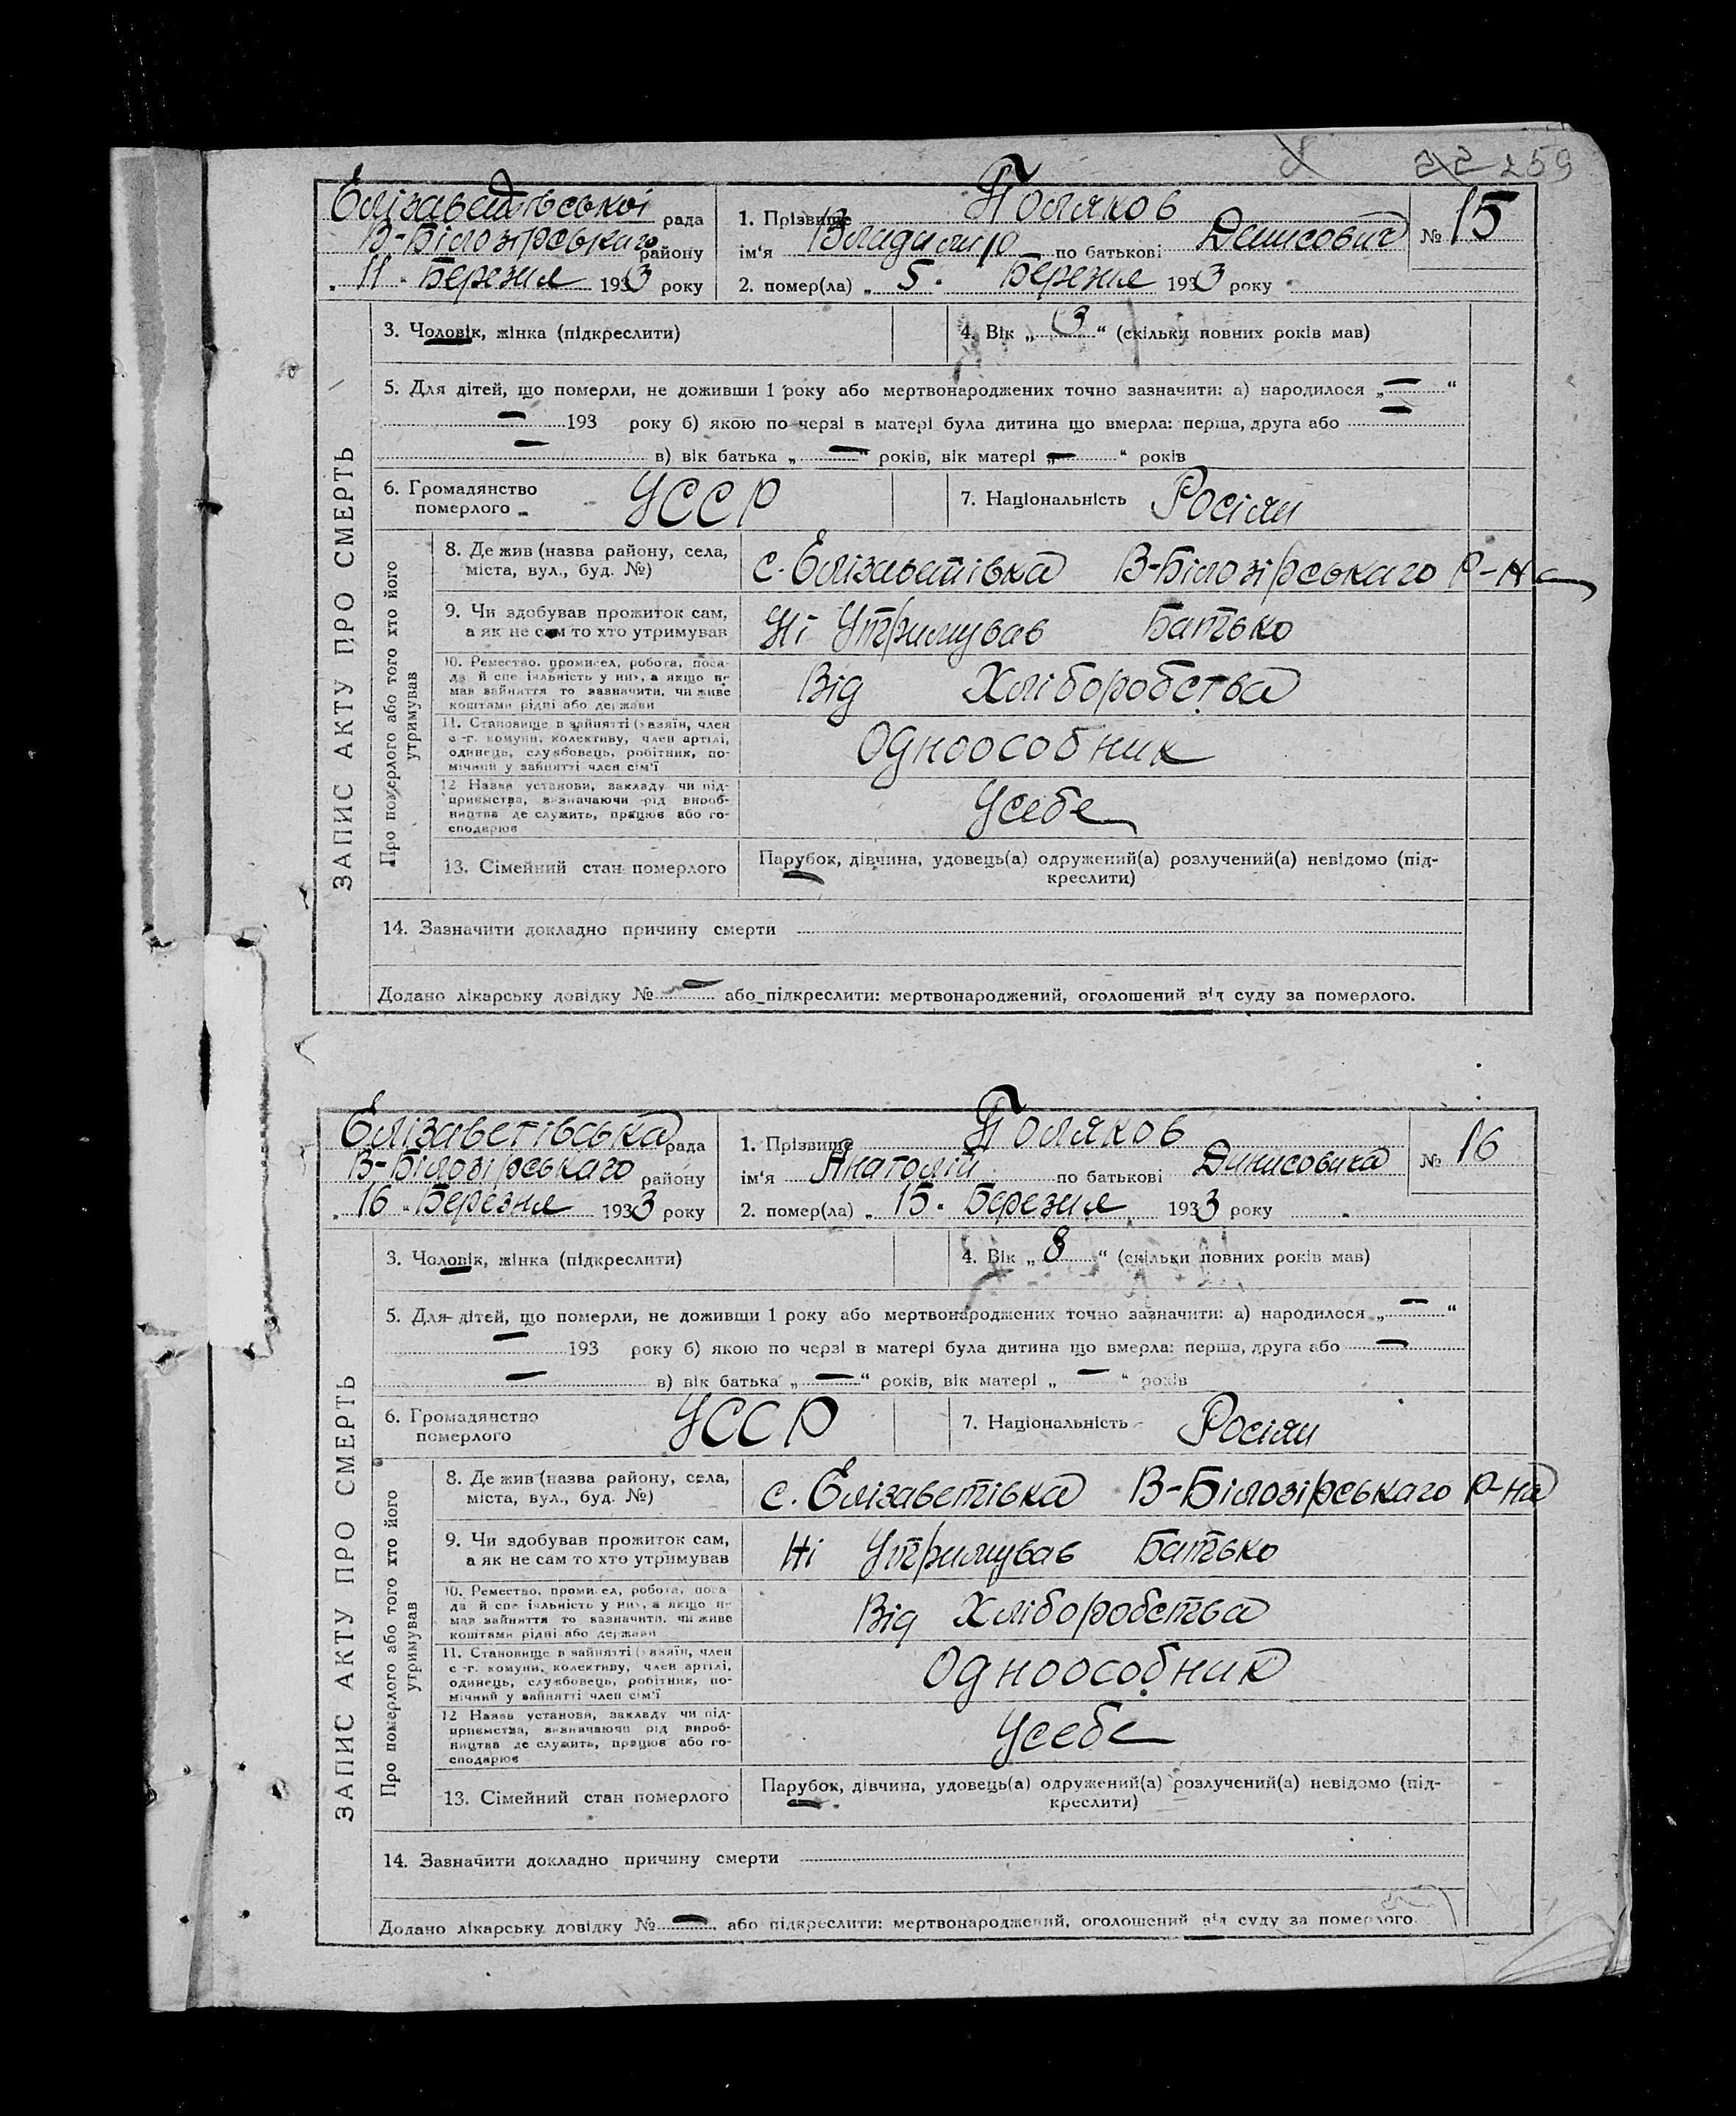 259
Елізаветівської рада
В-Білозірського району
„ 11 " Березня 1933 року
1. Прізвище Поляков
ім'я Владимир по батькові Денисович
№ 15
2. помер(ла) „ 5 " Березня 1933 року
ЗАПИС АКТУ ПРО СМЕРТЬ
3. Чоловік, жінка (підкреслити)
4. Вік „ 3 “ (скільки повних років мав)
5. Для дітей, що померли, не доживши 1 року або мертвонароджених точно зазначити: а) народилося „ — “
— 193 року б) якою по черзі в матері була дитина що вмерла: перша, друга або —
— в) вік батька „ — “ років, вік матері „ — “ років
6. Громадянство
померлого
УССР
7. Національність Росіян
Про померлого або того хто його
утримував
8. Де жив (назва району, села,
міста, вул., буд. №)
с. Єлізаветівка В-Білозірськаго Р-на
9. Чи здобував прожиток сам,
а як не сам то хто утримував
Ні Утримував Батько
10. Ремество, промисел, робота, поса-
да й спеціяльність у них, а якщо не
мав зайняття то зазначити, чи живе
коштами рідні або держави
Від Хліборобства
11. Становище в зайнятті (хазяїн, член
с.-г. комуни, колективу, член артілі,
одинець, службовець, робітник, по-
мічний у зайнятті член сім'ї
Одноособник
12. Назва установи, закладу чи під-
приємства, визначаючи рід вироб-
ництва де служить, працює або го-
сподарює
Усебе
13. Сімейний стан померлого
Парубок, дівчина, удовець(а) одружений(а) розлучений(а) невідомо (під-
креслити)
14. Зазначити докладно причину смерти
Додано лікарську довідку № — або підкреслити: мертвонароджений, оголошений від суду за померлого.
Елізаветівська рада
В-Білозірськаго району
„ 16 " Березня 1933 року
1. Прізвище Поляков
ім'я Анатолій по батькові Динисовича
№ 16
2. помер(ла) „ 15 " Березня 1933 року
ЗАПИС АКТУ ПРО СМЕРТЬ
3. Чоловік, жінка (підкреслити)
4. Вік „ 8 “ (скільки повних років мав)
5. Для дітей, що померли, не доживши 1 року або мертвонароджених точно зазначити: а) народилося „ — “
— 193 року б) якою по черзі в матері була дитина що вмерла: перша, друга або —
— в) вік батька „ — “ років, вік матері „ — “ років
6. Громадянство
померлого
УССР
7. Національність Росіян
Про померлого або того хто його
утримував
8. Де жив (назва району, села,
міста, вул., буд. №)
с. Єлізаветівка В-Білозірськаго Р-на
9. Чи здобував прожиток сам,
а як не сам то хто утримував
Ні Утримував Батько
10. Ремество, промисел, робота, поса-
да й спеціяльність у них, а якщо не
мав зайняття то зазначити, чи живе
коштами рідні або держави
Від Хліборобства
11. Становище в зайнятті (хазяїн, член
с.-г. комуни, колективу, член артілі,
одинець, службовець, робітник, по-
мічний у зайнятті член сім'ї
Одноособник
12. Назва установи, закладу чи під-
приємства, визначаючи рід вироб-
ництва де служить, працює або го-
сподарює
Усебе
13. Сімейний стан померлого
Парубок, дівчина, удовець(а) одружений(а) розлучений(а) невідомо (під-
креслити)
14. Зазначити докладно причину смерти
Додано лікарську довідку № — або підкреслити: мертвонароджений, оголошений від суду за померлого.